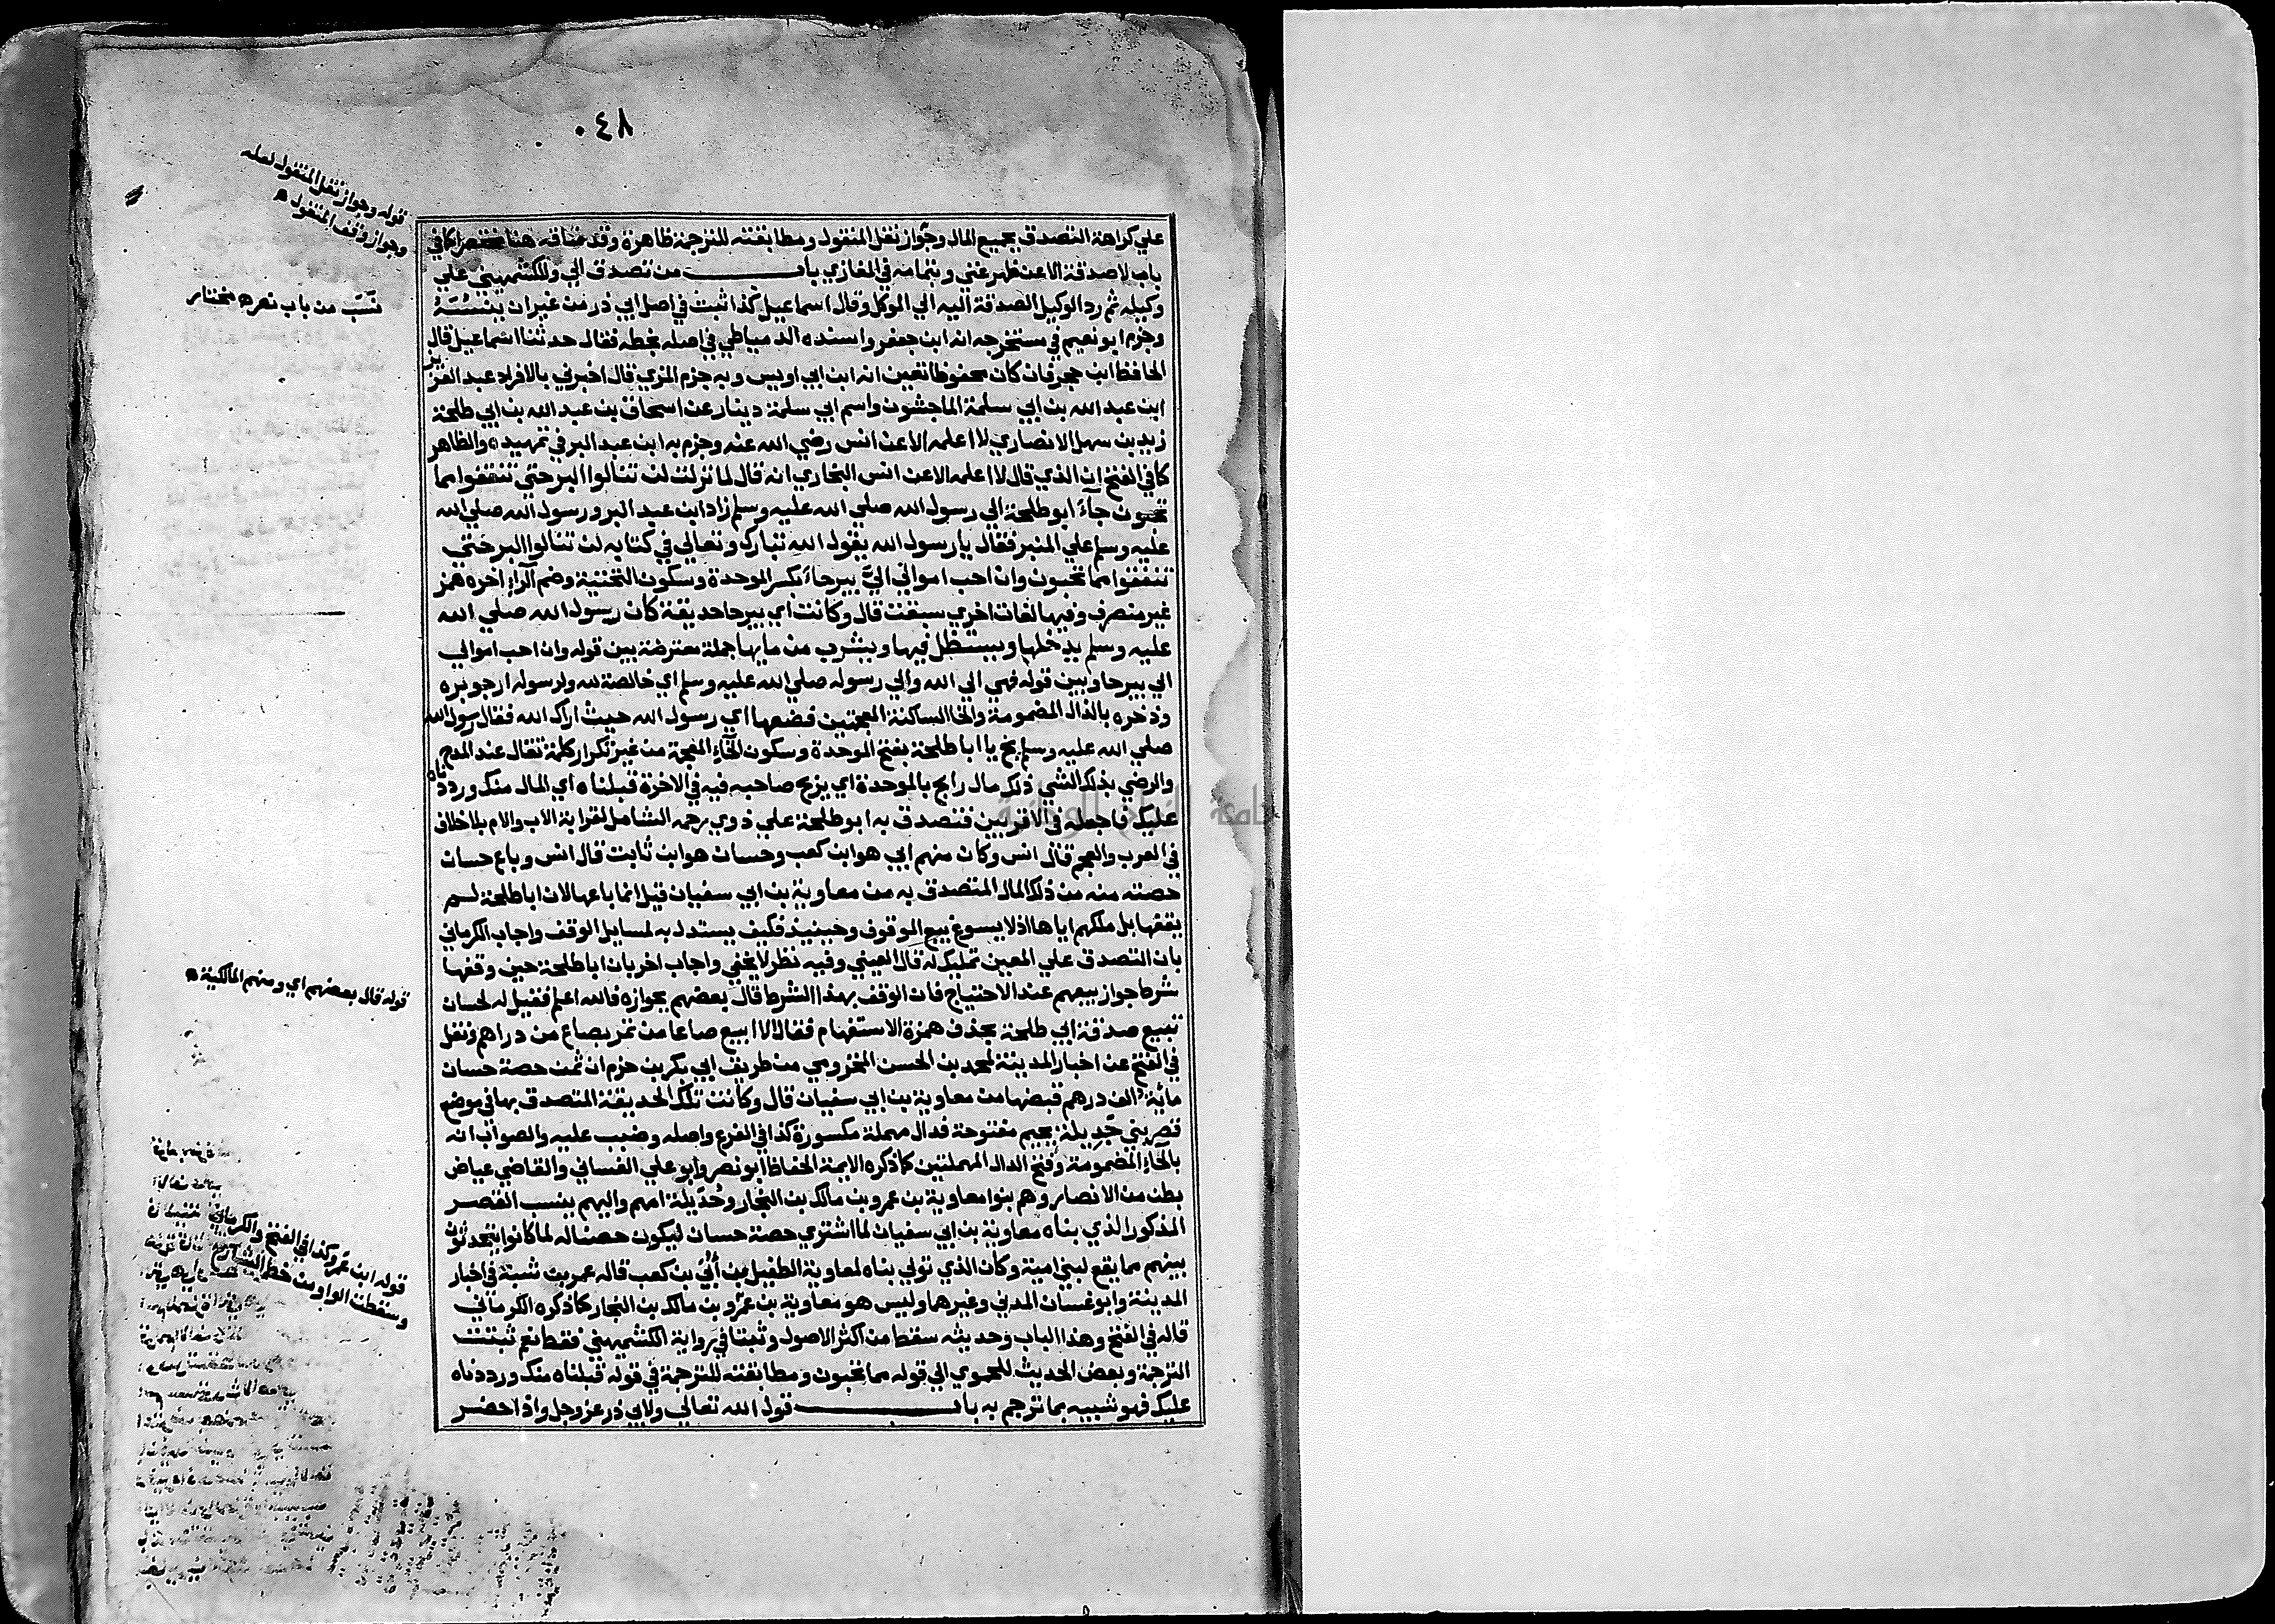 ٠٤٨
قوله وجواز نقل المنقول لعله
وجواز وقف المنقول ه
علي كراهة التصدق بجميع المال وجواز نقل المنقول ومطابقته للترجمة ظاهرة وقد ساقه هنا مختصرا كما في
باب لا صدقة الا عن ظهر غني وبتمامه في المغازي باب من تصدق الي وللكشميهني علي
وكيله ثم رد الوكيل الصدقة اليه الي الموكل وقال اسماعيل كذا ثبت في اصل ابي ذر من غير ان ينسبه
نسب من باب نصر ه مختار
وجزم ابو نعيم في مستخرجه انه ابن جعفر واسنده الدمياطي في اصله بخطه فقال حدثنا اسماعيل قال
الحافظ ابن حجر فان كان محفوظا تعين انه ابن ابي اويس وبه جزم المزي قال اخبرني بالافراد عبد العزيز
ابن عبد الله بن ابي سلمة الماجشون واسم ابي سلمة دينار عن اسحاق بن عبد الله بن ابي طلحة
زيد بن سهل الانصاري لا اعلمه الا عن انس رضي الله عنه وجزم به ابن عبد البر في تمهيده والظاهر
كما في الفتح ان الذي قال لا اعلمه الا عن انس البخاري انه قال لما نزلت لن تنالوا البر حتي تنفقوا مما
تحبون جاء ابو طلحة الي رسول الله صلي الله عليه وسلم زاد ابن عبد البر ورسول الله صلي الله
عليه وسلم علي المنبر فقال يا رسول الله يقول الله تبارك وتعالي في كتابه لن تنالوا البر حتي
تنفقوا مما تحبون وان احب اموالي اليّ بيرحاء بكسر الموحدة وسكون التحتية وضم الراء اخره همز
غير منصرف وفيها لغات اخري سبقت قال وكانت اي بيرحا حديقة كان رسول الله صلي الله
عليه وسلم يدخلها ويستظل فيها ويشرب من مايها جملة معترضة بين قوله وان احب اموالي
الي بيرحا وبين قوله فهي الي الله والي رسوله صلي الله عليه وسلم اي خالصة لله ولرسوله ارجو بره
وذخره بالذال المضمومة والخا الساكنة المعجمتين فضعها اي رسول الله حيث اراك الله فقال رسول الله
صلي الله عليه وسلم بخ يا ابا طلحة بفتح الموحدة وسكون الخاء المعجمة من غير تكرار كلمة تقال عند المدح
والرضي بذلك الشي ذلك مال رابح بالموحدة اي يربح صاحبه فيه في الاخرة قبلناه اي المال منك ورددناه
عليك فاجعله في الاقربين فتصدق به ابو طلحة علي ذوي رحمه الشامل لقرابة الاب والام بلا خلاف
في العرب والعجم قال انس وكان منهم ابي هو ابن كعب وحسان هو ابن ثابت قال انس وباع حسان
حصته منه من ذلك المال المتصدق به من معاوية بن ابي سفيان قيل انما باعها لان ابا طلحة لسم
يقفها بل ملكهم اياها اذ لا يسوغ بيع الموقوف وحينيذ فكيف يستدل به لمسايل الوقف واجاب الكرماني
بان التصدق علي المعين تمليك له قال العيني وفيه نظر لا يخفي واجاب اخر بان ابا طلحة حين وقفها
شرط جواز بيعهم عند الاحتياج فان الوقف بهذا الشرط قال بعضهم بجوازه فالله اعلم فقيل له لحسان
قوله قال بعضهم اي ومنهم المالكية ه
تبيع صدقة ابي طلحة بحذف همزة الاستفهام فقال الا ابيع صاعا من تمر بصاع من دراهم ونقل
في الفتح عن اخبار المدينة لمحمد بن الحسن المخزومي من طريق ابي بكر بن حزم ان ثمن حصة حسان
ماية الف درهم قبضها من معاوية بن ابي سفيان قال وكانت تلك الحديقة المتصدق بها في موضع
قصر بني جَدِيلة بجيم مفتوحة فدال مهملة مكسورة كذا في الفرع واصله وضبب عليه والصواب انه
بالحاء المضمومة وفتح الدال المهملتين كما ذكره الايمة الحفاظ ابو نصر وابو علي الغساني والقاضي عياض
بطن من الانصار وهم بنوا معاوية بن عمرو بن مالك بن النجار وحُدَيلة امهم واليهم ينسب القصر
المذكور الذي بناه معاوية بن ابي سفيان لما اشتري حصة حسان ليكون حصنا له لما كانوا يتحدثون
بينهم مما يقع لبني امية وكان الذي تولي بناه لمعاوية الطفيل بن أُبي بن كعب قاله عمر بن شبة في اخبار
المدينة وابو غسان المدني وغيرهما وليس هو معاوية بن عمرو بن مالك بن النجار كما ذكره الكرماني
قوله ابن عمرو كذا في الفتح والكرماني
وسقطت الواو من خط الشارح
قاله في الفتح وهذا الباب وحديثه سقط من اكثر الاصول وثبتا في رواية الكشميهني فقط نعم ثبتت
الترجمة وبعض الحديث للحموي الي قوله مما تحبون ومطابقته للترجمة في قوله قبلناه منك ورددناه
عليك فهو شبيه بما ترجم به باب قول الله تعالي ولابي ذر عز وجل واذا حضر